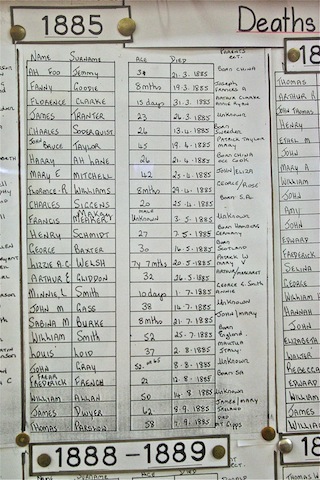 1885
Deaths
NAME SURNAME AGE DIED PARENTS ECT.
AH FOO Jemmy 21.3.1885 BORN CHINA
FANNY GOODIE 8mths 19.3.1885 JOSEPH FRANCES A
FLORENCE CLARKE 15 days 31.3.1885 ARTHUR CLARKE ANNE RYAN
JAMES TRANTER 23 26.3.1885 UNKNOWN
CHARLES SODERQUIST 26 13.4.1885 BORN SWEDEN
JOHN BRUCE TAYLOR 45 19.4.1885 PATRICK TAYLOR MARY
HARRY AH LANE 26 21.4.1885 BORN CHINA COOK
MARY E MITCHELL 42 25.4.1885 JOHN/ELIZA
FLORENCE.R WILLIAMS 8mths 29.4.1885 GEORGE/ROSE
CHARLES SIGGENS 20 25.4.1885 BORN S.A.
FRANCIS MALE UNKNOWN 3.5.1885 UNKNOWN
HENRY SCHMIDT 27 7.5.1885 BORN GERMANY
GEORGE BAXTER 30 16.5.1885 BORN SCOTLAND
LIZZIE A.C WELSH 7y 7mths 20.5.1885 PATRICK W MARY V
ARTHUR E GLIDDON 32 26.5.1885 ARTHUR/MARGARET
MINNIE L Smith 10 days 1.7.1885 GEORGE E Smith ANNIE
JOHN M GASS 38 14.7.1885 UNKNOWN
SABINA M BURKE 8mths 21.7.1885 JOHN/MARY
WILLIAM Smith 52 25.7.1885 BORN England
LOUIS LOID 37 2.8.1885
JOHN GRAY 8.8.1885 UNKNOWN
FREDERICK FRENCH 22 12.8.1885 BORN SA
WILLIAM ALLAN 50 14.8.1885 UNKNOWN
JAMES DWYER 62 8.9.1885 JAMES/MARY IRELAND
THOMAS PARSLOW 58 7.9.1885 DIED MT GIPPS
18
THOMAS
ARTHUR R
JOHN THOMAS
HENRY
ETHEL M
JOHN
MARY A
WILLIAM
JOHN
AMY
JOHN
EDWARD
FREDERICK
SELINA
GEORGE
WILLIAM
HANNAH
JOHN
ELIZABETH
WALTER
REBECCA
EDWARD
WILLIAM
1888-1889
18
NAME SURNAME AGE DIED ECT.